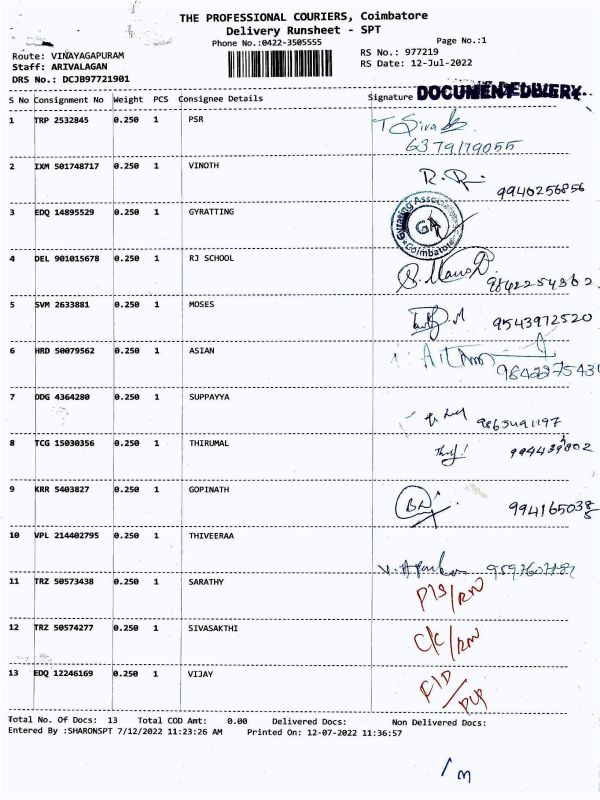 THE PROFESSIONAL COURIERS, Coimbatore
Delivery Runsheet - SPT
Phone No.:0422-3505555 Page No.:1
Route: VINAYAGAPURAM RS No.: 977219
Staff: ARIVALAGAN RS Date: 12-Jul-2022
DRS No.: DCJB97721901
S No Consignment No Weight PCS Consignee Details Signature DOCUMENT DELIVERY
1 TRP 2532845 0.250 1 PSR T Siva
6379179055
2 IXM 501748717 0.250 1 VINOTH
9940256856
3 EDQ 14895529 0.250 1 GYRATTING Gyrating Associates GA Coimbatore
4 DEL 901015678 0.250 1 RJ SCHOOL
9842254362
5 SVM 2633881 0.250 1 MOSES 9543972520
6 HRD 50079562 0.250 1 ASIAN
7 DDG 4364280 0.250 1 SUPPAYYA
8 TCG 15030356 0.250 1 THIRUMAL
9 KRR 5403827 0.250 1 GOPINATH
10 VPL 214402795 0.250 1 THIVEERAA
11 TRZ 50573438 0.250 1 SARATHY P/S/RN
12 TRZ 50574277 0.250 1 SIVASAKTHI C/C/RN
13 EDQ 12246169 0.250 1 VIJAY
Total No. Of Docs: 13 Total COD Amt: 0.00 Delivered Docs: Non Delivered Docs:
Entered By :SHARONSPT 7/12/2022 11:23:26 AM Printed On: 12-07-2022 11:36:57